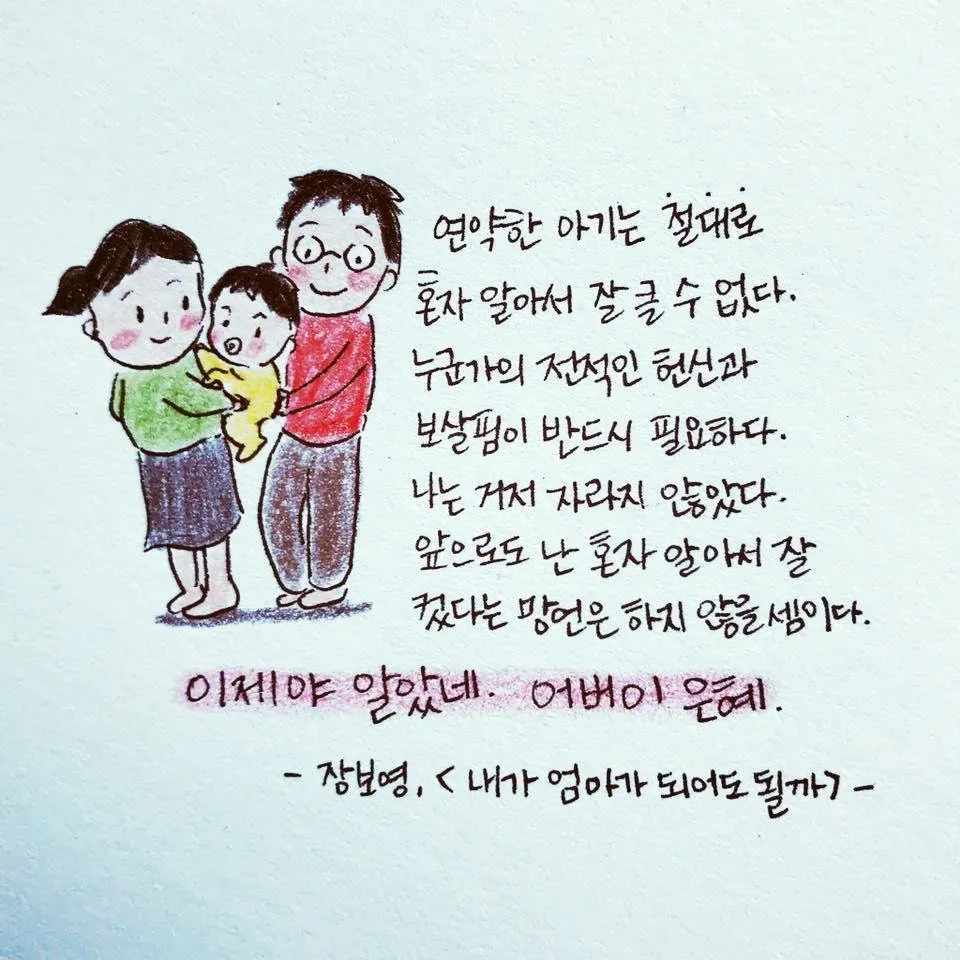 연약한 아기는 절대로
혼자 알아서 잘 클 수 없다.
누군가의 전적인 헌신과
보살핌이 반드시 필요하다.
나는 거저 자라지 않았다.
앞으로도 난 혼자 알아서 잘
컸다는 망언은 하지 않을 셈이다.
이제야 알았네. 어버이 은혜.
- 장보영, <내가 엄마가 되어도 될까> -